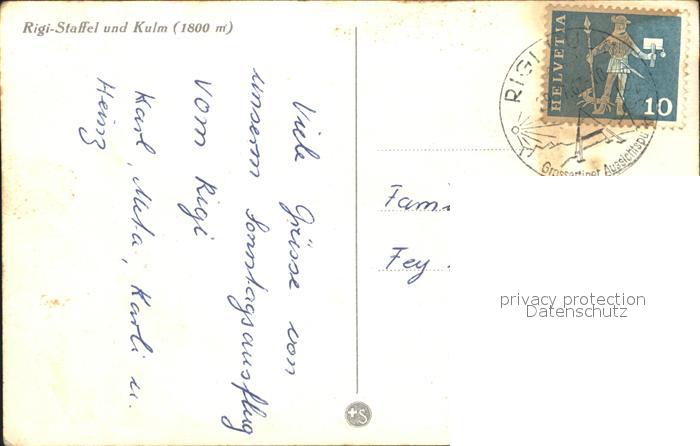 Rigi-Staffel und Kulm (1800 m)
Viele Grüsse von
unserm Sonntagsausflug
vom Rigi
Karl, Meta, Karli u.
Heinz
HELVETIA
10
RIGI
Grossartiger Aussichtspu
Fam
Fey
privacy protection
Datenschutz
+S